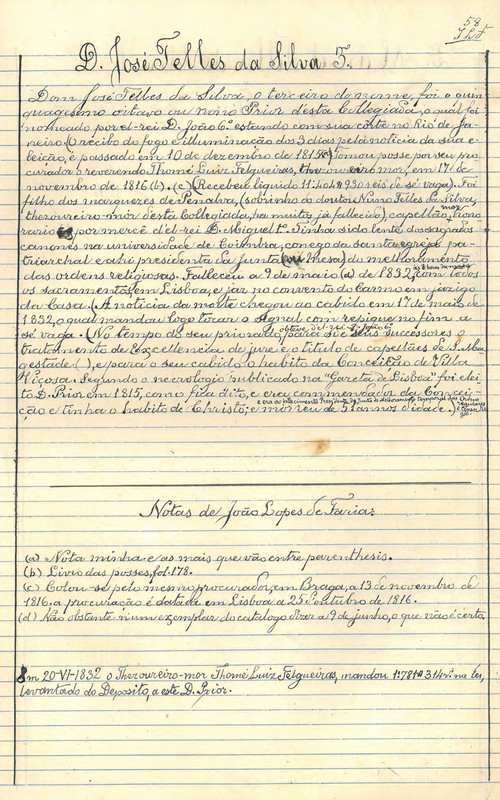 58
D. José Telles da Silva 3.
Dom José Telles da Silva, o terceiro do nome, foi o quin
quagesimo oitavo ou nono Prior d'esta Collegiada, o qual foi
nomeado por el-rei D. João 6º estando com sua côrte no Rio de Ja
neiro. (O recibo do fogo e illuminação dos 3 dias pela noticia da sua e
leição, é passado em 10 de dezembro de 1815) Tomou posse por seu pro
curador o reverendo Thomé Luiz Felgueiras, thesoureiro mór, em 17 de
novembro de 1816 (b). (c) (Recebeu liquido 11:404$950 reis de sé vaga). Foi
filho dos marquezes de Penalva, (sobrinho do doutor Nuno Telles da Silva,
thesoureiro-mór d'esta Collegiada, ha muitos já fallecido), capellão hono
rario por mercê d'el-rei D. Miguel 1º. Tinha sido lente dos sagrados
canones na universidade de Coimbra, conego da santa egreja pa
triarchal e ahi presidente da Junta (ou Mesa) do melhoramento
das ordens religiosas. Falleceu a 9 de maio (d) de 1832, com todos
os sacramentos, em Lisboa, e jaz no convento do Carmo em jazigo
da Casa. (A noticia da morte chegou ao cabido em 17 de maio de
1832, o qual mandou logo tocar o signal com repique no fim a
sé vaga. (No tempo do seu priorado, obteve d'el-rei D. João 6º para si e seus successores o
tratamento de Excellencia de jure e o titulo de capellães de S. Ma
gestade ( ), e para o seu cabido o habito da Conceição de Villa
Viçosa. Segundo o necrologio publicado na "Gazeta de Lisboa" foi elei
to D. Prior em 1815, como fica dito, e era commendador da Concei
ção e tinha o habito de Christo; e morreu de 51 annos d'idade.)
Notas de João Lopes de Faria:
(a) Nota minha e as mais que vão entre parenthesis.
(b) Livro das posses, fol. 178.
(c) Colou-se pelo mesmo procurador, em Braga, a 13 de novembro de
1816. a procuração é datada em Lisboa a 25 d'outubro de 1816.
(d) Não obstante n'um exemplar do catalogo dizer a 9 de junho, o que não é certo.
Em 20-VI-1832 o Thesoureiro-mor Thomé Luiz Felgueiras, mandou
levantado do Deposito, a este D. Prior.